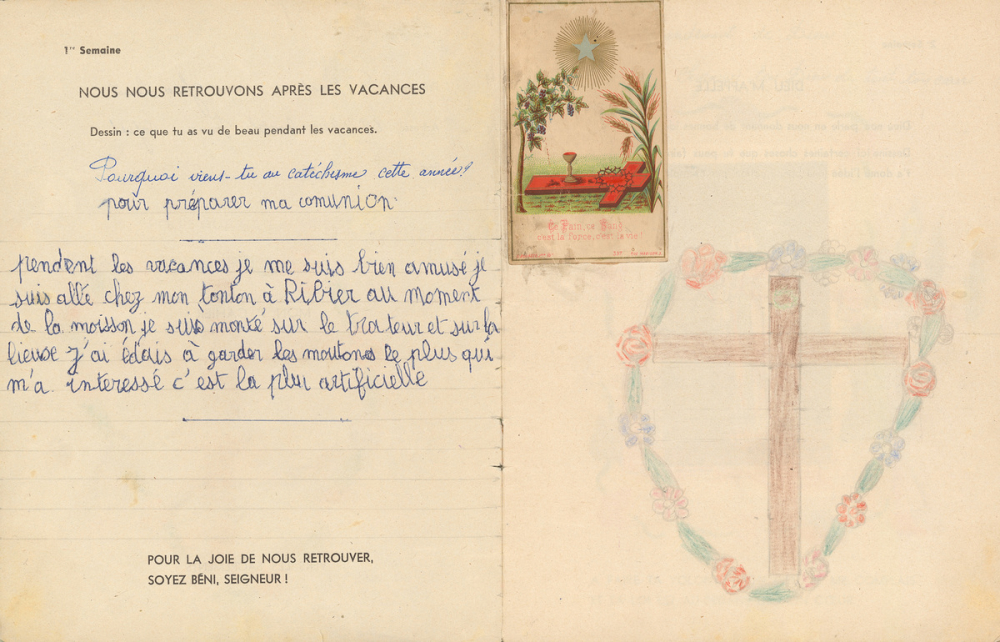 1re Semaine
NOUS NOUS RETROUVONS APRÈS LES VACANCES
Dessin : ce que tu as vu de beau pendant les vacances.
Pourquoi viens-tu au catéchisme cette année?
pour préparer ma comunion
pendent les vacances je me suis bien amusé je
suis allé chez mon tonton à Ribier au moment
de la moisson je suis monté sur le tracteur et sur la
lieuse j'ai édais à garder les moutons le plus qui
m'a interessé c'est la plui artificielle
POUR LA JOIE DE NOUS RETROUVER,
SOYEZ BÉNI, SEIGNEUR !
Ce Pain, ce Sang,
c'est la force, c'est la vie!